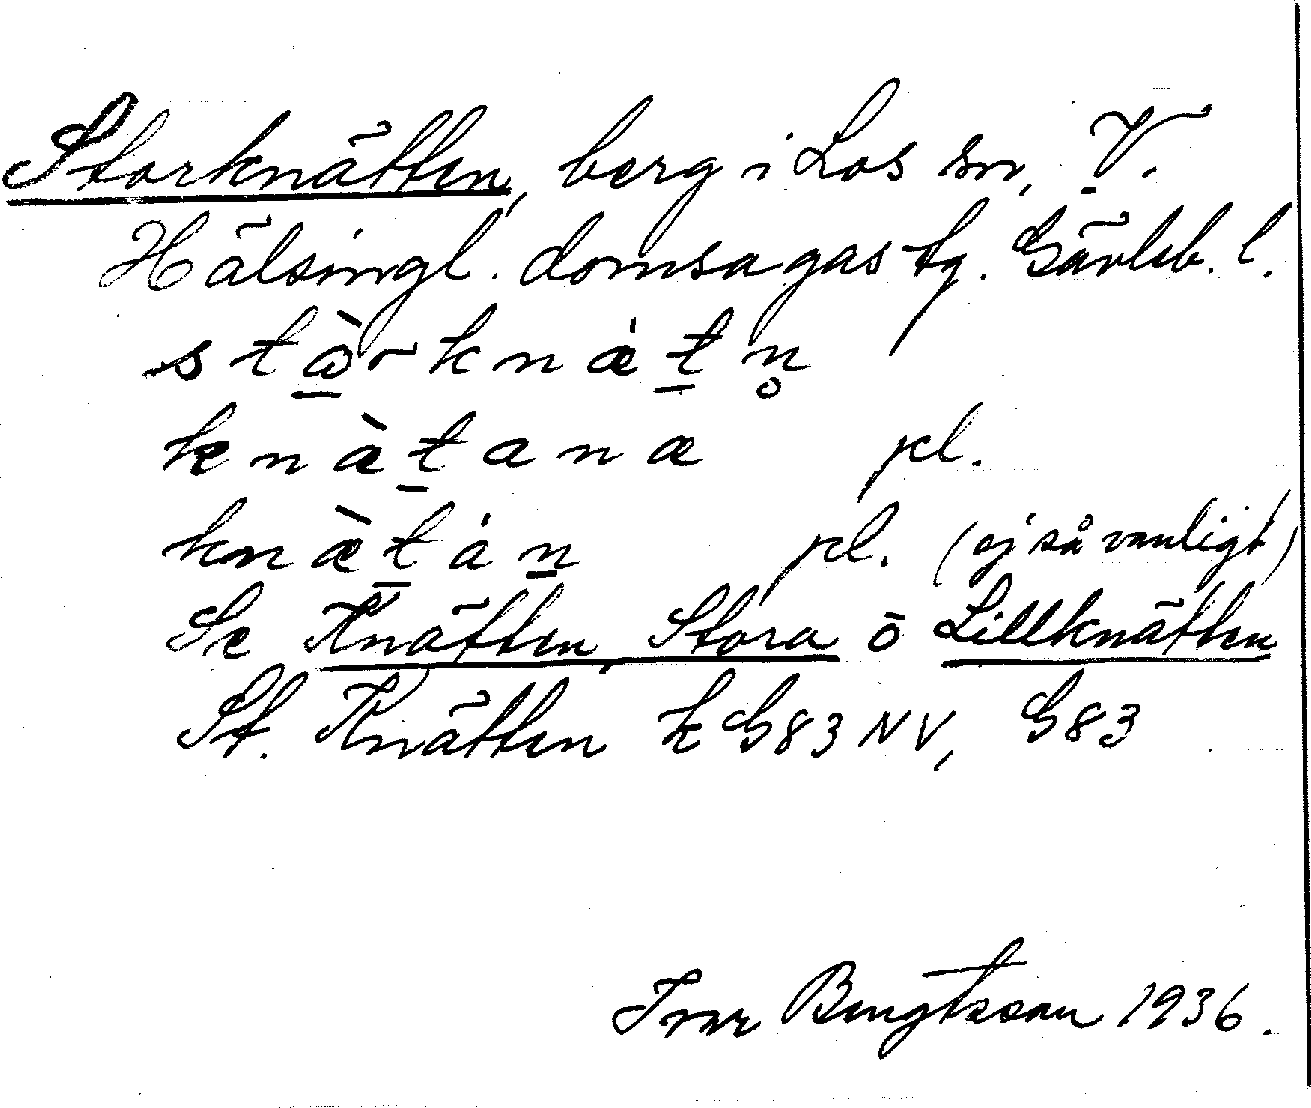 Storknätten, berg i Los sn, V.
Hälsingl. domsagas tg. Gävleb. l.
stɷ̠̀rknǽt̠n̥
knæ̀t̠ana pl.
knæ̀t̠án̠ pl. (ej så vanligt)
Se Knätten, Stora o Lillknätten
St. Knätten k G83 NV, G83
Ivar Bengtsson 1936.